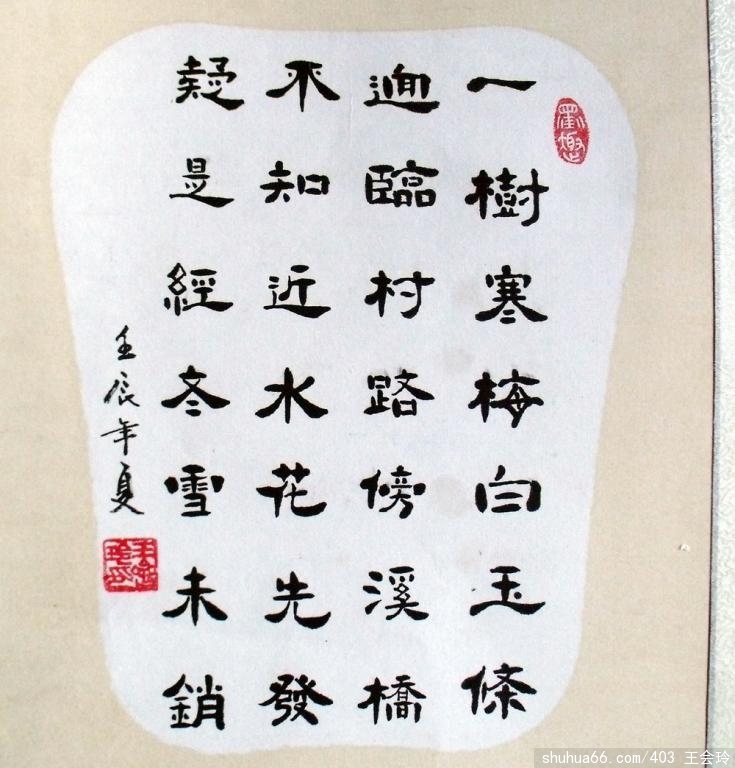 一樹寒梅白玉條
迥臨村路傍溪橋
不知近水花先發
疑是經冬雪未銷
壬辰年夏
shuhua66.com/403 王会玲